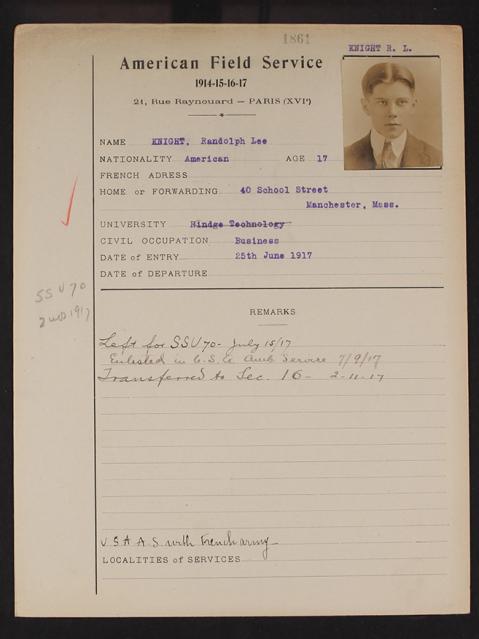 1861
KNIGHT R. L.
American Field Service
1914-15-16-17
21, Rue Raynouard — PARIS (XVIe)
NAME KNIGHT, Randolph Lee
NATIONALITY American AGE 17
FRENCH ADRESS
HOME or FORWARDING 40 School Street
Manchester, Mass.
UNIVERSITY Hindge Technology
CIVIL OCCUPATION Business
DATE of ENTRY 25th June 1917
DATE of DEPARTURE
SSU 70
2 1917
REMARKS
Left for SSU 70 - July 15/17
Enlisted in U.S.A. Amb Service 7/9/17
Transferred to Sec. 16 - 2-11-17
U S A A S with French army
LOCALITIES of SERVICES